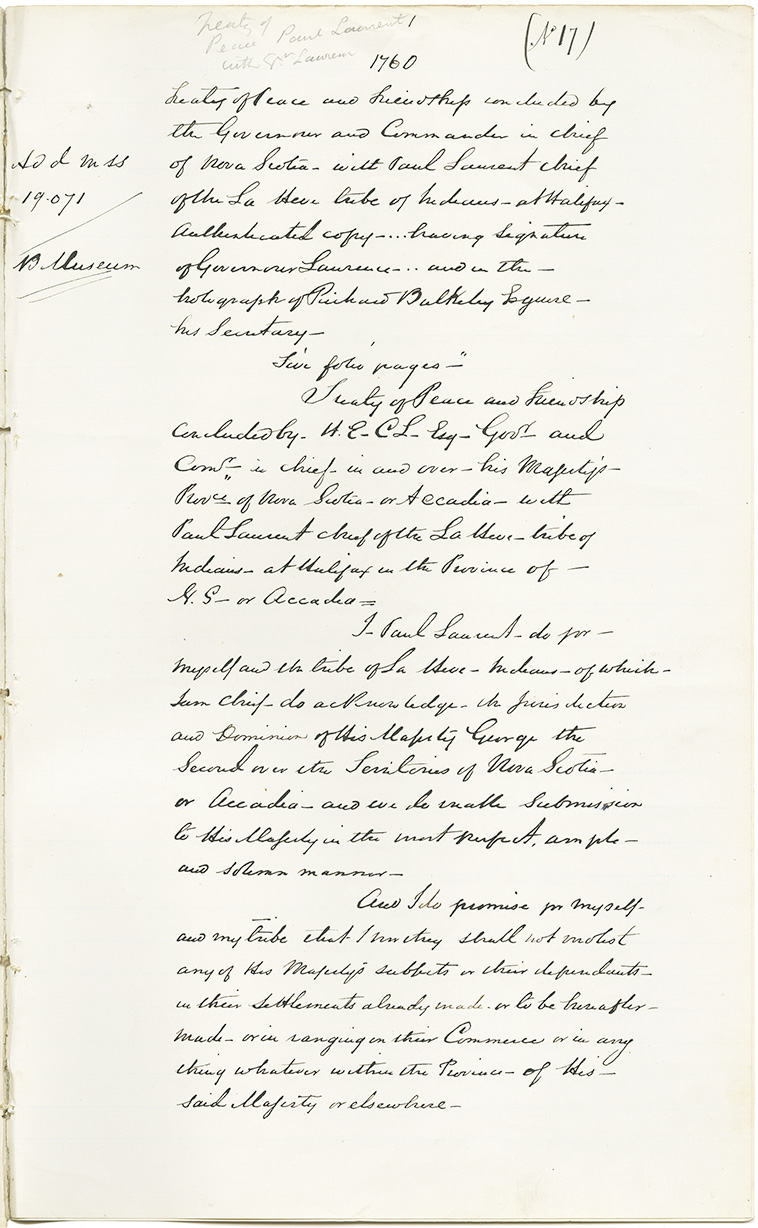 Treaty of
Peace Paul Laurent
with Gvr Lawren
1
(No 17)
1760
Treaty of Peace and Friendship concluded by
the Governour and Commander in chief
of Nova Scotia - with Paul Laurent chief
of the La Heve tribe of Indians - at Halifax -
Authenticated copy - ... having Signature
of Governour Laurence ... and in the -
holograph of Richard Bulkeley Esquire -
his Secretary -
Add mss
19.071
B Museum
Five folio pages - "
Treaty of Peace and Friendship
concluded by - H. E - C L - Esq - Govr - and
Comr - in chief - in and over - his Majesty's -
Provce of Nova Scotia - or Accadia - with
Paul Laurent chief of the La Heve - tribe of
Indians - at Halifax in the Province of -
N. S - or Accadia =
I - Paul Laurent - do for -
myself and the tribe of La Heve - Indians - of which -
I am Chief - do acknowledge - the jurisdiction
and Dominion of His Majesty George the
Second over the Territories of Nova Scotia -
or Accadia - and we do make Submission
to His Majesty in the most perfect, ample -
and solemn manner -
And I do promise for myself -
and my tribe that I nor they shall not molest
any of His Majesty's subjects or their dependants -
in their settlements already made - or to be hereafter -
made - or in ranging on their Commerce or in any
thing whatever within the Province - of His -
said Majesty or elsewhere -